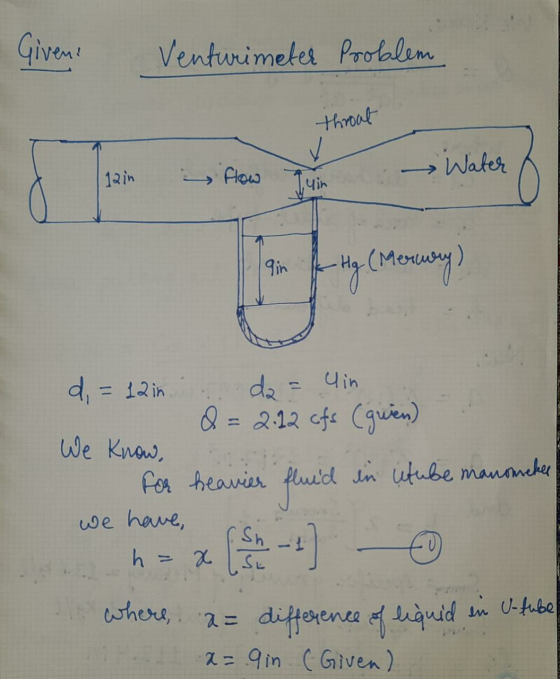 Given:
Venturimeter Problem
throat
12in
→ Flow
4in
→ Water
9in
Hg (Mercury)
d₁ = 12in d₂ = 4in
Q = 2.12 cfs (given)
We Know,
For heavier fluid in Utube manometer
we have,
h = x [Sh/SL - 1] —— (1)
where, x = difference of liquid in U-tube
x = 9in (Given)